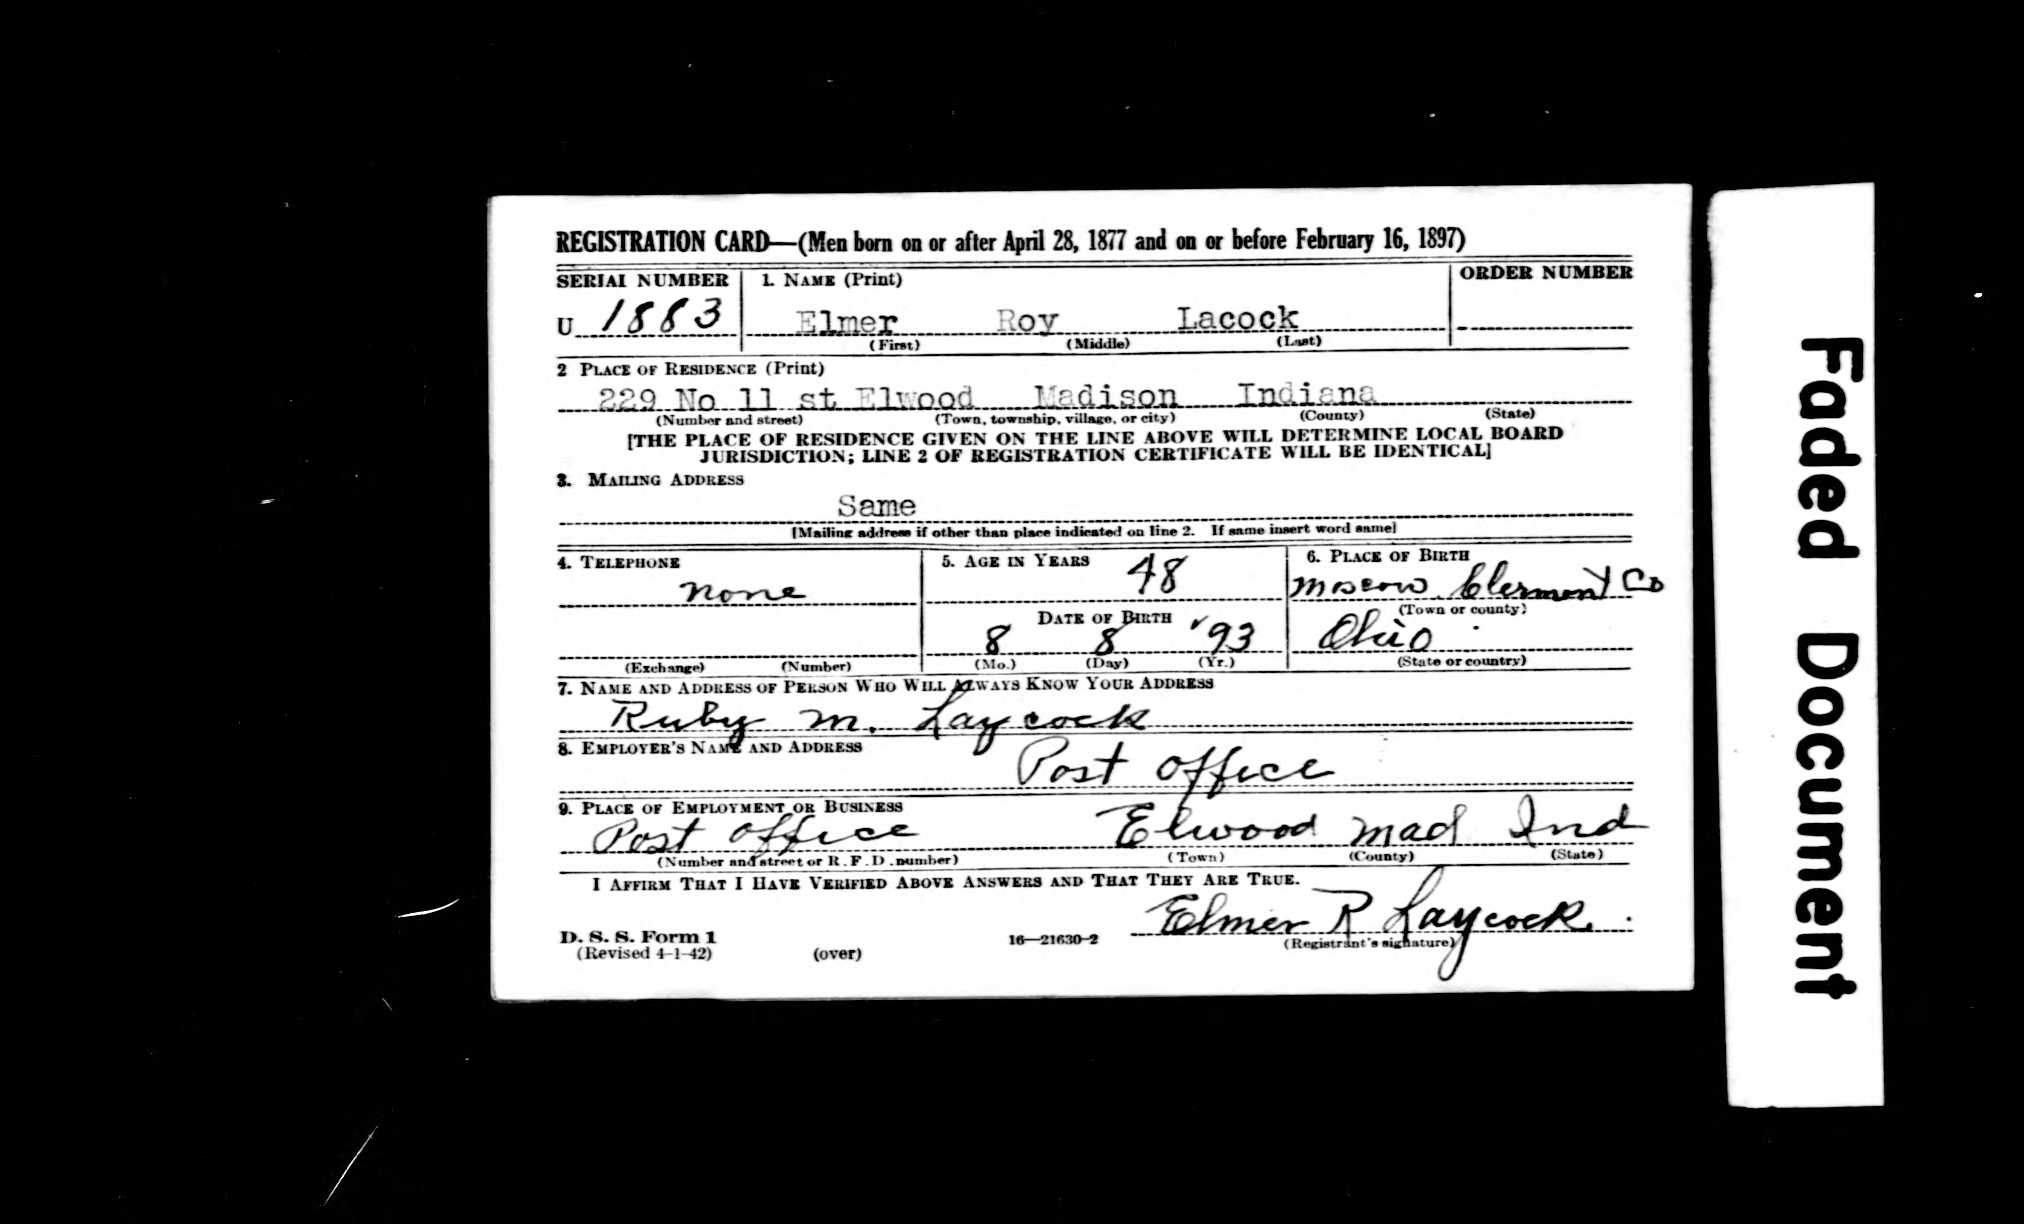 REGISTRATION CARD—(Men born on or after April 28, 1877 and on or before February 16, 1897)
SERIAL NUMBER 1. NAME (Print) ORDER NUMBER
U 1883 Elmer Roy Lacock
(First) (Middle) (Last)
2 PLACE OF RESIDENCE (Print)
229 No 11 st Elwood Madison Indiana
(Number and street) (Town, township, village, or city) (County) (State)
[THE PLACE OF RESIDENCE GIVEN ON THE LINE ABOVE WILL DETERMINE LOCAL BOARD
JURISDICTION; LINE 2 OF REGISTRATION CERTIFICATE WILL BE IDENTICAL]
3. MAILING ADDRESS
Same
[Mailing address if other than place indicated on line 2. If same insert word same]
4. TELEPHONE 5. AGE IN YEARS 6. PLACE OF BIRTH
None 48 Moscow Clermont Co
DATE OF BIRTH (Town or county)
8 8 '93 Ohio
(Exchange) (Number) (Mo.) (Day) (Yr.) (State or country)
7. NAME AND ADDRESS OF PERSON WHO WILL ALWAYS KNOW YOUR ADDRESS
Ruby M. Laycock
8. EMPLOYER'S NAME AND ADDRESS
Post Office
9. PLACE OF EMPLOYMENT OR BUSINESS
Post Office Elwood Mad Ind
(Number and street or R. F. D. number) (Town) (County) (State)
I AFFIRM THAT I HAVE VERIFIED ABOVE ANSWERS AND THAT THEY ARE TRUE.
Elmer R Laycock
D. S. S. Form 1 16—21630-2 (Registrant's signature)
(Revised 4-1-42) (over)
Faded Document